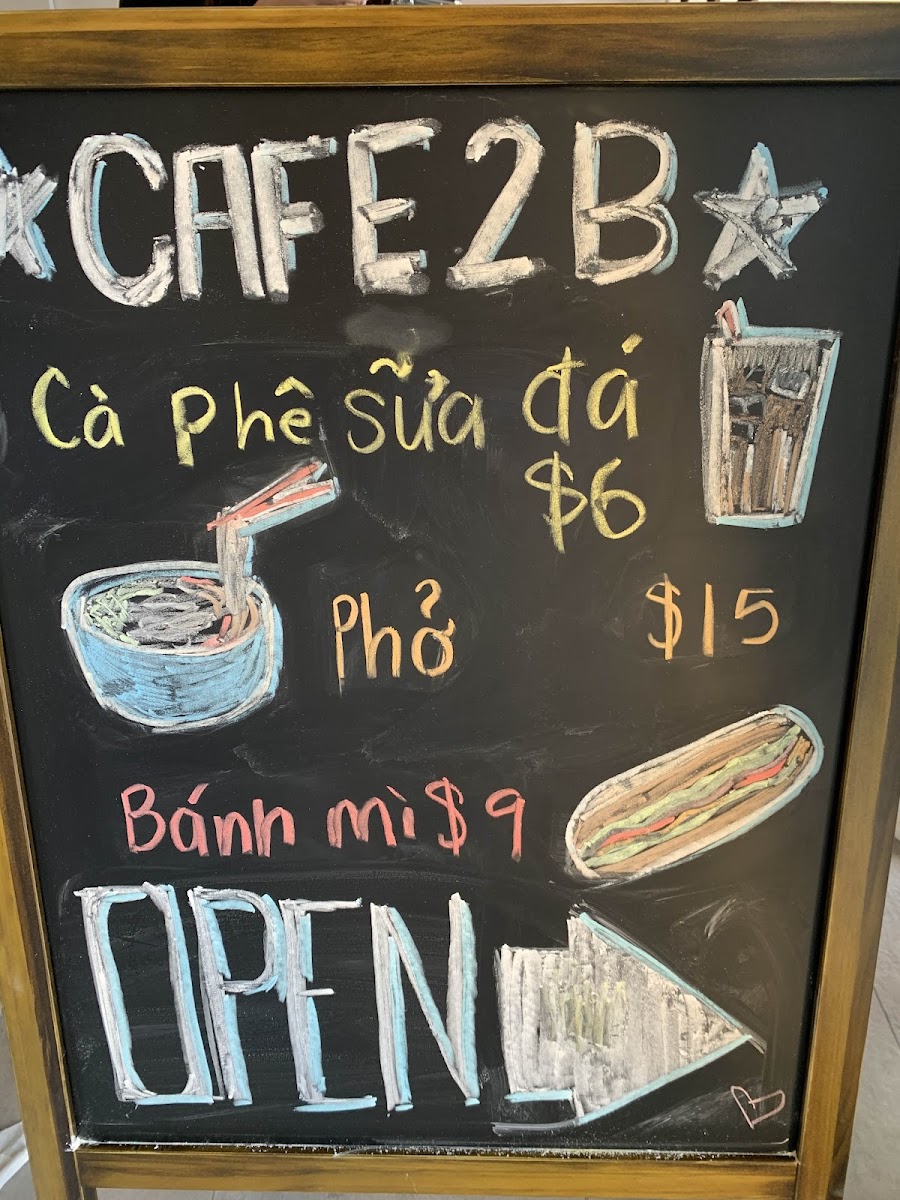 CAFE 2B
Cà phê sữa đá
$6
Phở $15
Bánh mì $9
OPEN